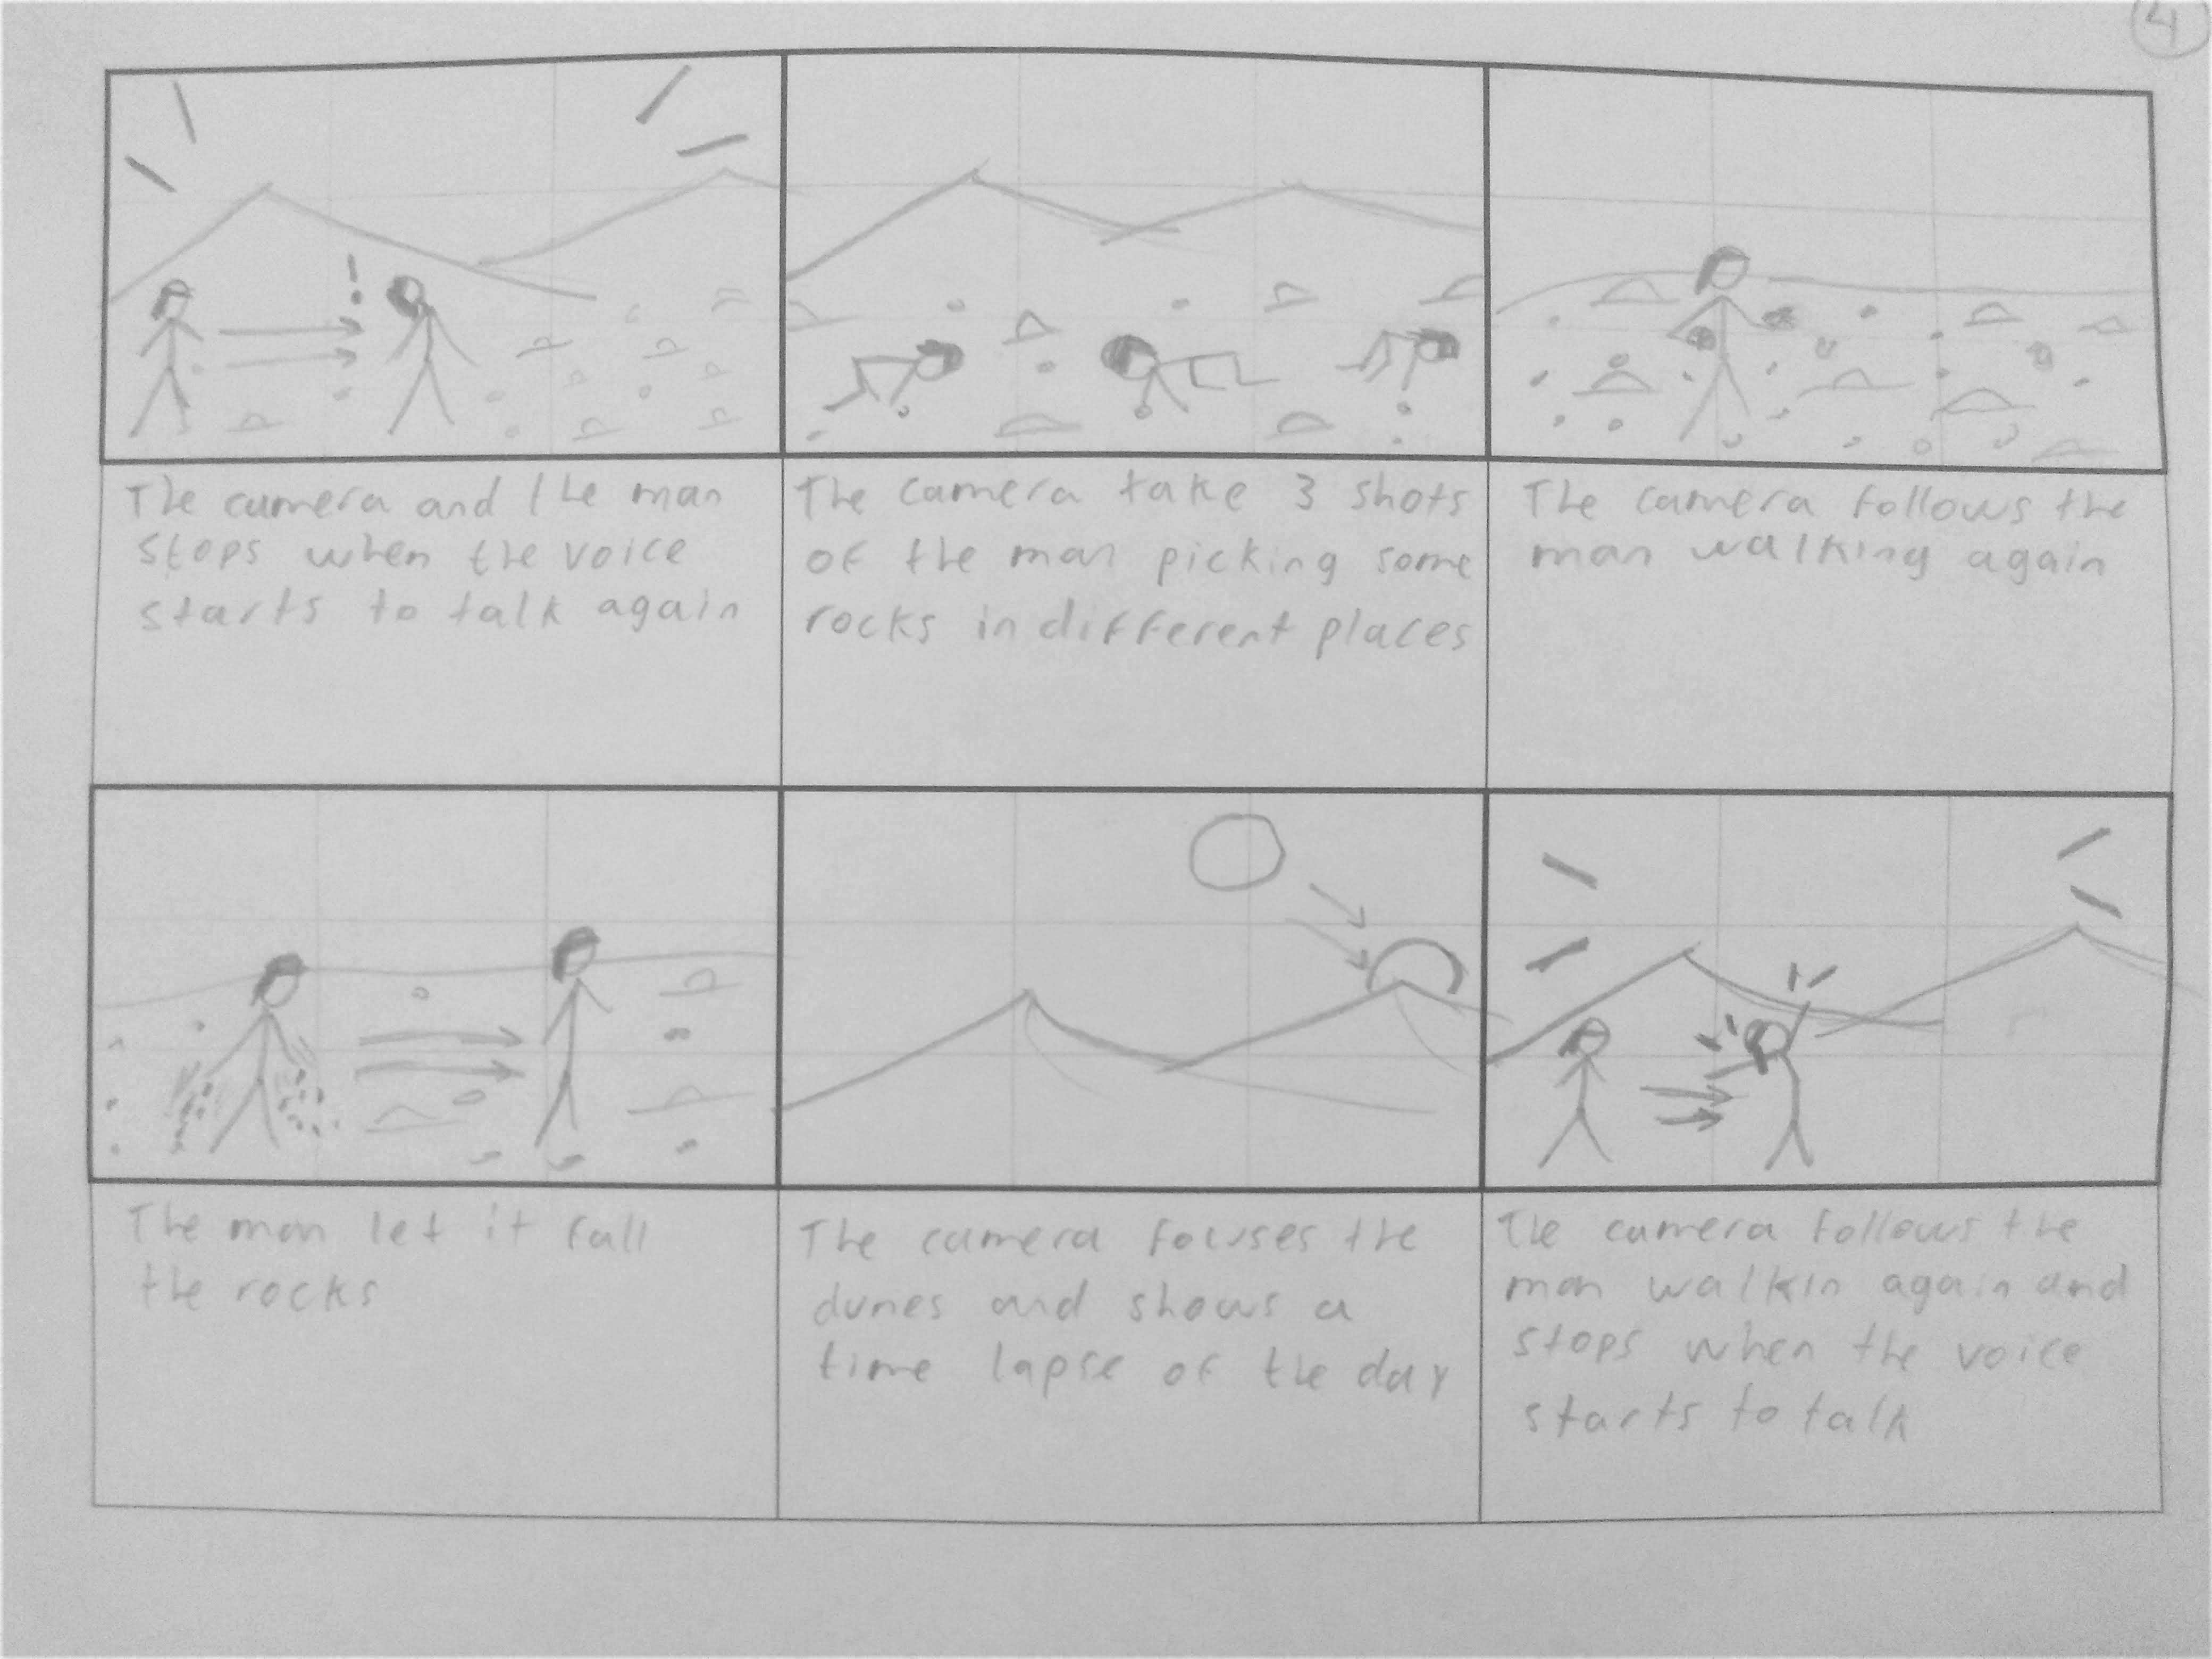 4
The camera and the man
stops when the voice
starts to talk again
The camera take 3 shots
of the man picking some
rocks in different places
The camera follows the
man walking again
!
The man let it fall
the rocks
The camera focuses the
dunes and shows a
time lapse of the day
The camera follows the
man walkin again and
stops when the voice
starts to talk